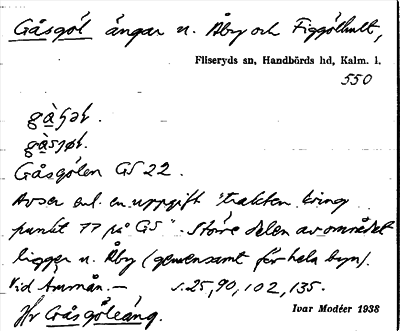 Gåsgöl ängar u. Åby och Figgölhult,
Fliseryds sn, Handbörds hd, Kalm. l.
550
Gåsgölen GS 22.
Avser enl. en uppgift "trakten kring
punkt 77 på GS". Större delen av området
ligger u. Åby (gemensamt för hela byn).
Vid Ammån. — s. 25, 90, 102, 135.
Jfr Gåsgöleäng.
Ivar Modéer 1938